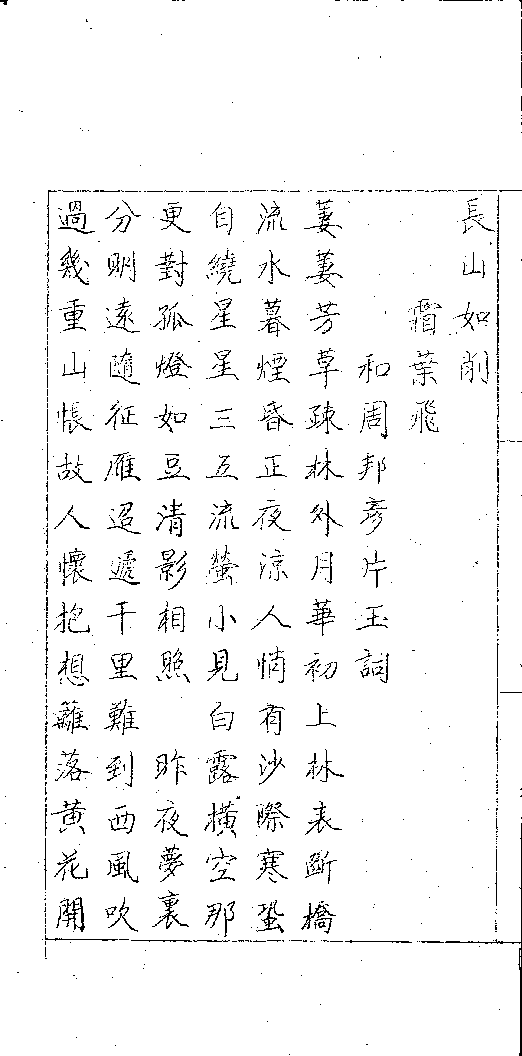 長山如削
霜葉飛
和周邦彥片玉詞
萋萋芳草疎林外月華初上林表斷橋
流水暮煙昏正夜涼人悄有沙際寒蛩
自繞星星三五流螢小見白露橫空那
更對孤燈如豆清影相照　昨夜夢裏
分明遠隨征雁迢遞千里難到西風吹
過幾重山悵故人懷抱想籬落黃花開